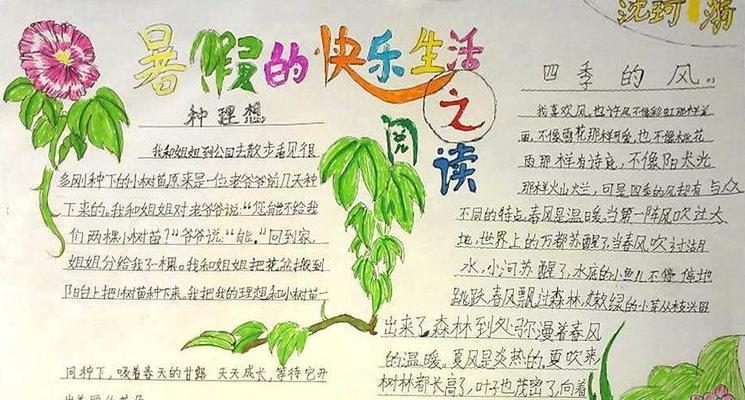 沈珂
暑假的快乐生活
之
阅
读
种理想
我和姐姐到公园去散步看见很
多刚种下的小树苗原来是一位老爷爷前几天种
下来的。我和姐姐对老爷爷说:“您能不给我
们两棵小树苗?”爷爷说:“能。”回到家,
姐姐分给我了一棵。我和姐姐把花盆搬到
阳台上把小树苗种下来。我把我的理想和小树苗一
同种下,吸着春天的甘露 天天成长,等待它开
四季的风。
我喜欢风,也许风不像彩虹那样美
丽,不像雪花那样可爱,也不像桃花
雨那样有诗意,不像阳光
那样火山灿烂,可是四季的风却有与众
不同的特点。春风是温暖,当第一阵风吹过大
地,世界上的万都苏醒了,当春风吹过湖
水,小河苏醒了,水底的小鱼儿不停停地
跳跃。春风飘过森林,嫩绿的小芽从枝
出来了,森林到处弥漫着春风
的温暖。夏风是炎热的,夏吹来,
树林都长高了,叶子也茂密了,向着